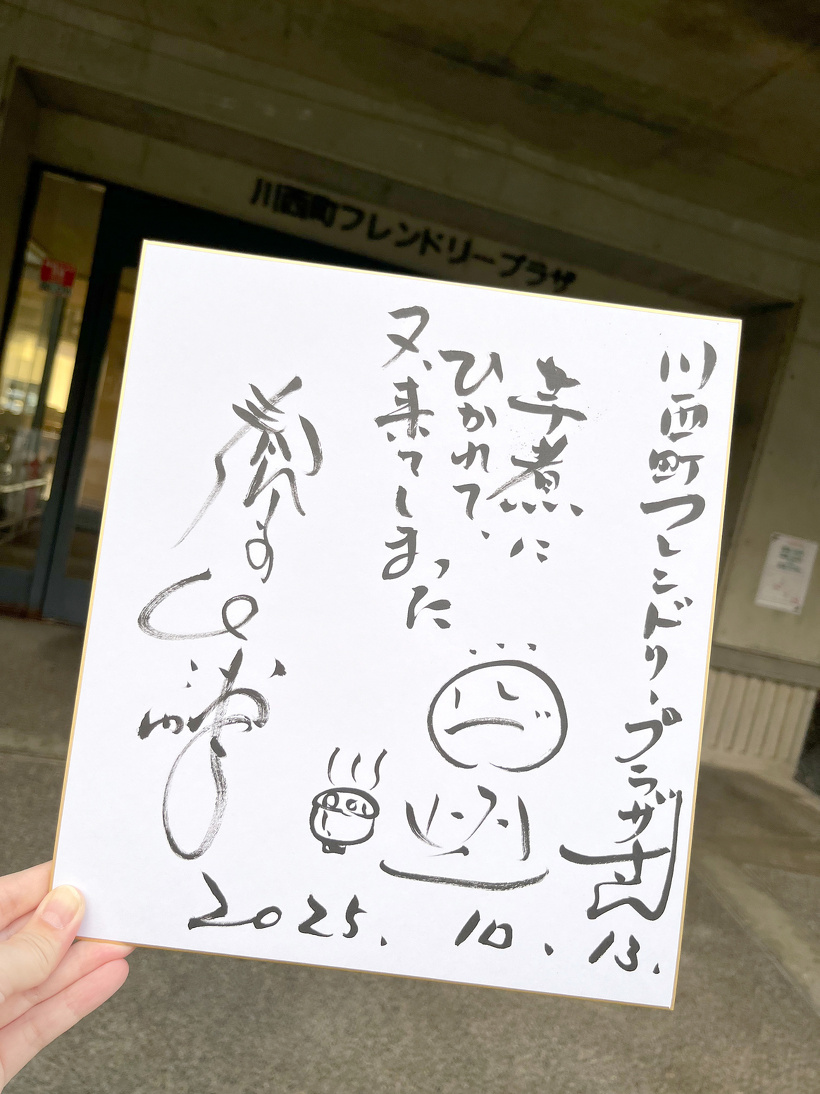 川西町フレンドリープラザ
川西町フレンドリープラザ
芋煮に
ひかれて、
又、来てしまった
2025. 10. 13.